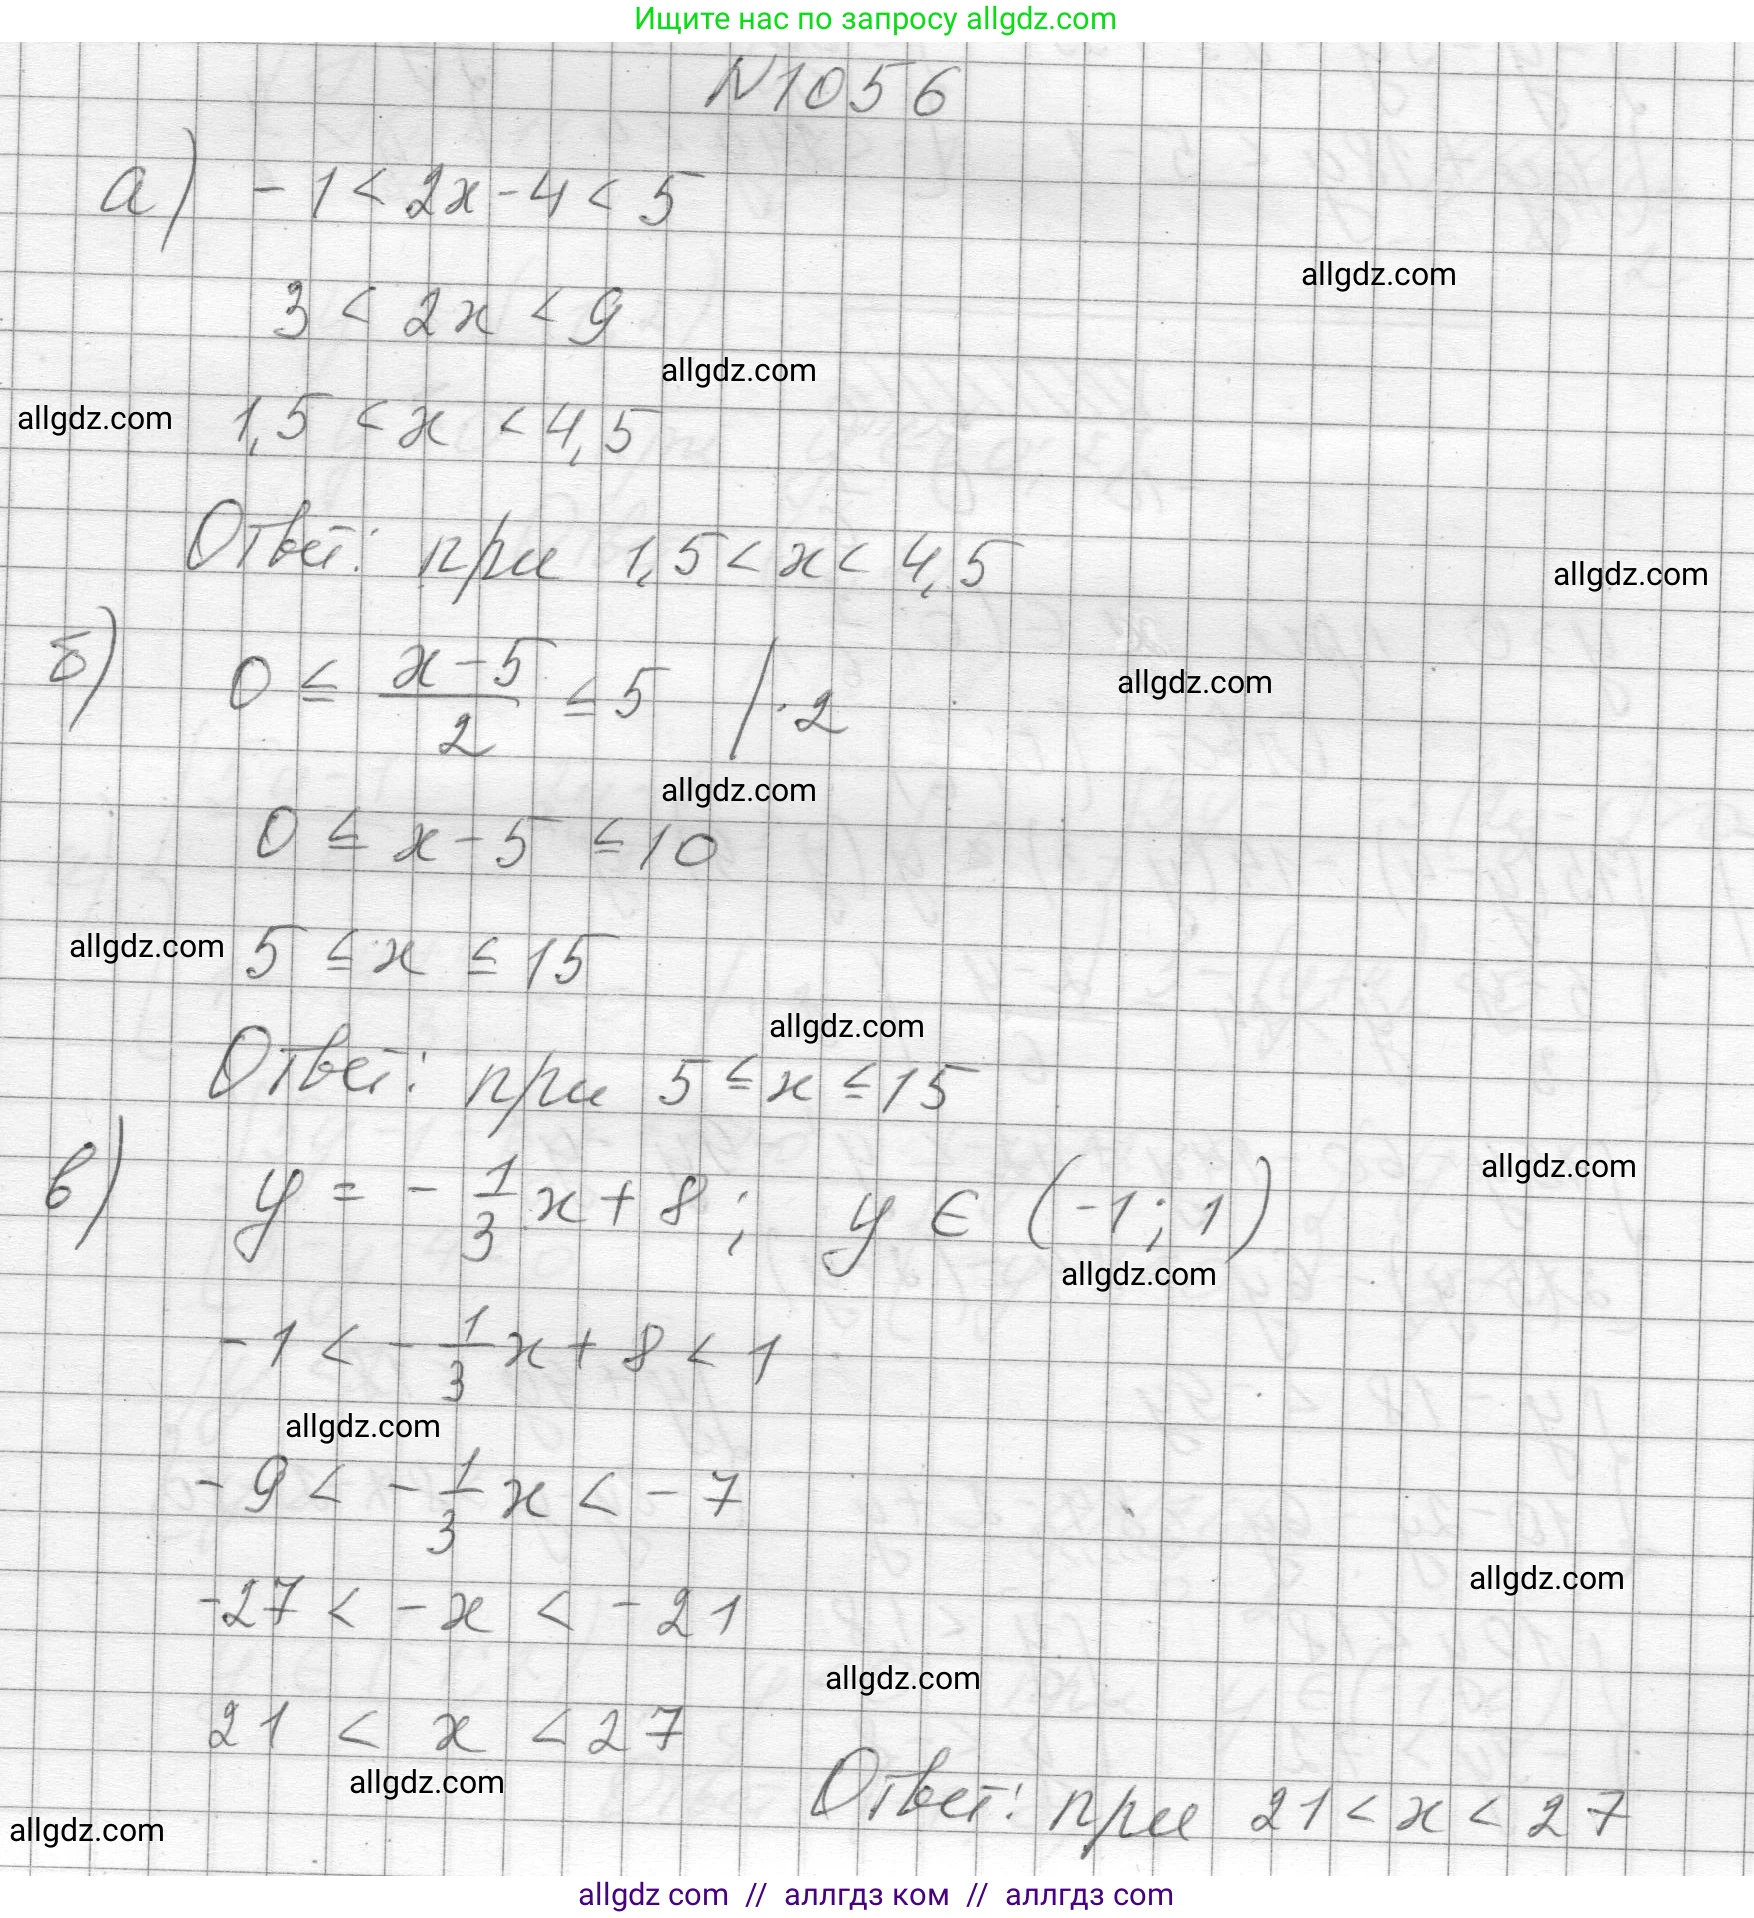 Ищите нас по запросу allgdz.com
N1056
а) -1 < 2x - 4 < 5
allgdz.com
3 < 2x < 9
allgdz.com
allgdz.com
1,5 < x < 4,5
Ответ: при 1,5 < x < 4,5
allgdz.com
б) 0 ≤ (x-5)/2 ≤ 5 | · 2
allgdz.com
allgdz.com
0 ≤ x - 5 ≤ 10
allgdz.com
5 ≤ x ≤ 15
allgdz.com
Ответ: при 5 ≤ x ≤ 15
в) y = - 1/3 x + 8 ; y ∈ (-1; 1)
allgdz.com
allgdz.com
-1 < - 1/3 x + 8 < 1
allgdz.com
-9 < - 1/3 x < -7
allgdz.com
-27 < -x < -21
allgdz.com
21 < x < 27
allgdz.com
Ответ: при 21 < x < 27
allgdz.com
allgdz com // аллгдз ком // аллгдз com